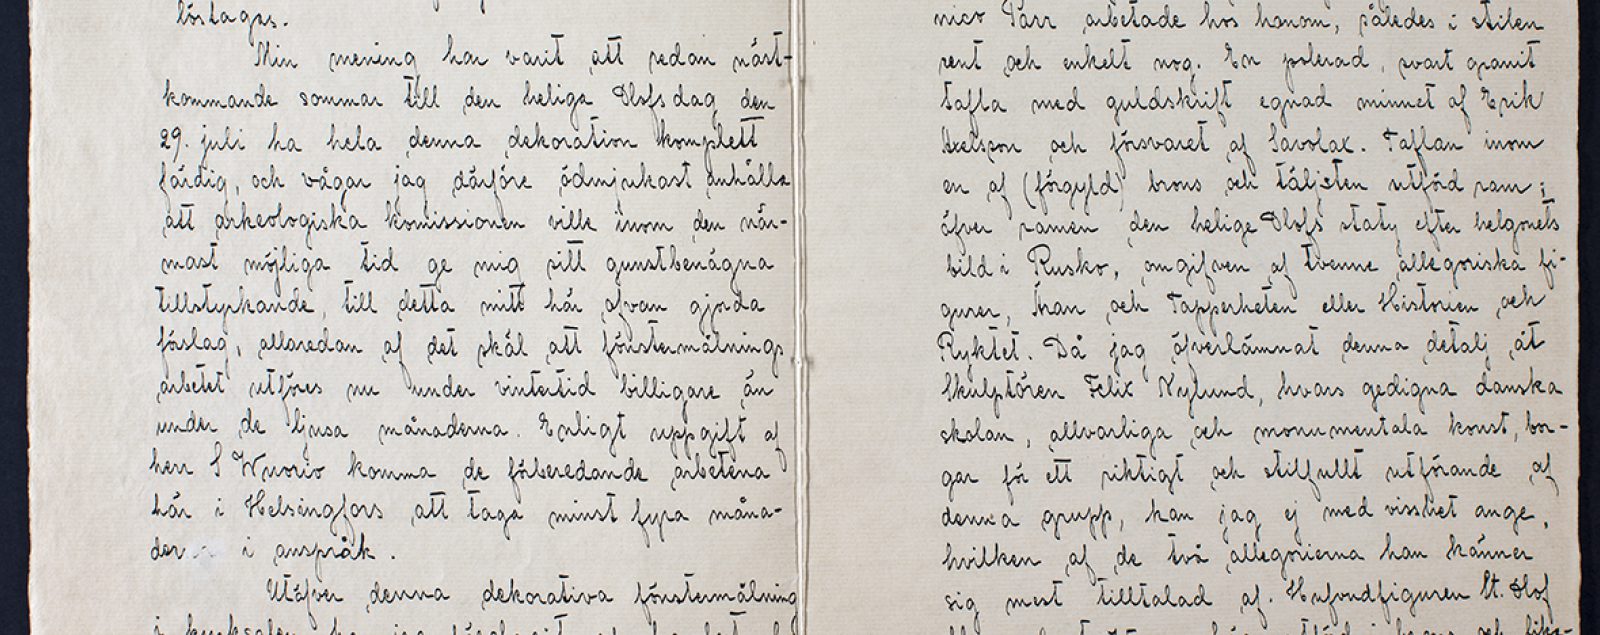 löstagas.
Min mening har varit att redan näst-
kommande sommar till den heliga Olofs dag den
29. juli ha hela denna dekoration komplett
färdig, och vågar jag därföre ödmjukast anhålla
att arkeologiska komissionen ville inom den när-
mast möjliga tid ge mig sitt gunstbenägna
tillstyrkande till detta mitt här ofvan gjorda
förslag, allaredan af det skäl att fönstermålnings
arbetet utföres nu under vintertid billigare än
under de ljusa månaderna. Enligt uppgift af
herr S Wuorio komma de förberedande arbetena
här i Helsingfors att taga minst fyra måna-
der i anspråk.
Utöfver denna dekorativa fönstermålning
i
nico Parr arbetade hos honom, således i stilen
rent och enkelt nog. En polerad, svart granit
tafla med guldskrift egnad minnet af Erik
Axelsson och försvaret af Savolax. Taflan inom
en af (förgyld) brons och täljsten utförd ram;
öfver ramen den helige Olofs staty efter helgonets
bild i Rusko, omgifven af tvenne allegoriska fi-
gurer, Äran och Tapperheten eller Historien och
Ryktet. Då jag öfverlämnat denna detalj åt
Skulptören Felix Nylund, hvars gedigna danska
skolan, allvarliga och monumentala konst, bor-
gar för ett riktigt och stilfullt utförande af
denna grupp, kan jag ej med visshet ange,
hvilken af de två allegorierna han känner
sig mest tilltalad af. Hufvudfiguren St. Olof